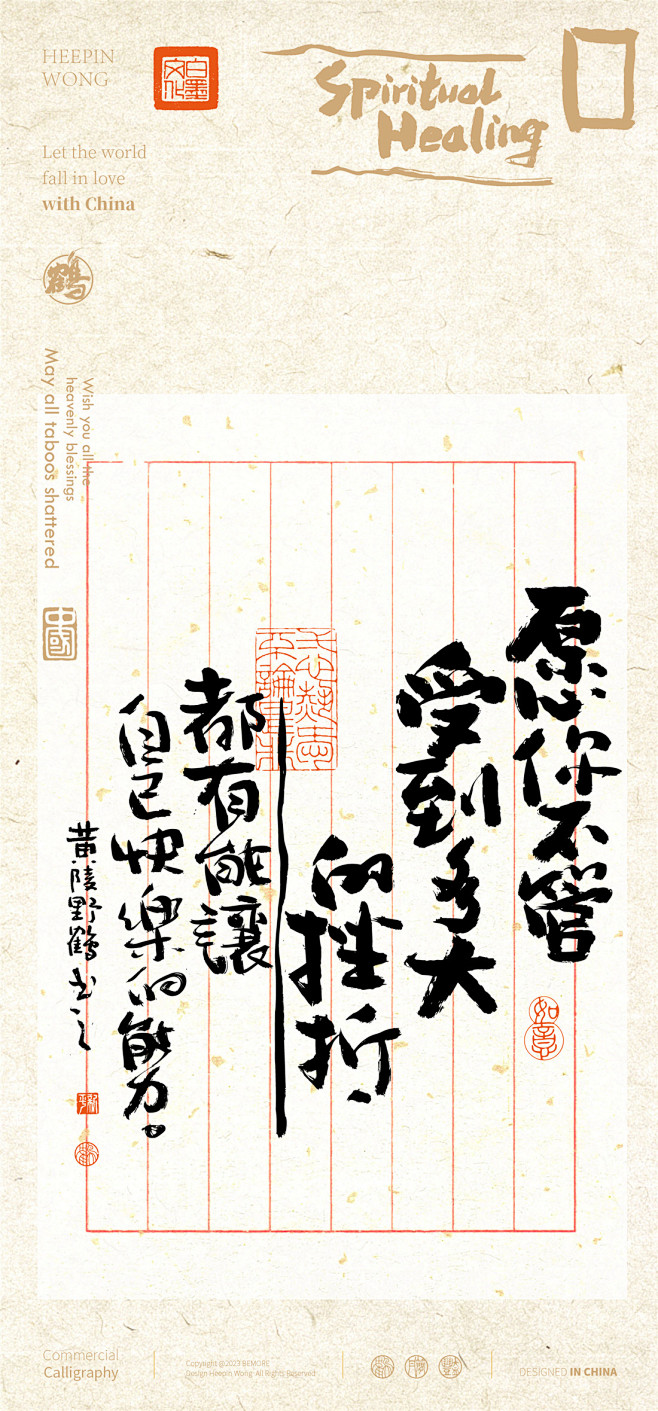 HEEPIN
WONG
白墨文化
Spiritual
Healing
Let the world
fall in love
with China
鹤
Wish you all the
heavenly blessings
May all taboos shattered
中國
愿你不管
受到多大
的挫折
都有能讓
自己快樂的能力。
黄陵野鶴书之
如意
Commercial
Calligraphy
Copyright @2023 BEMORE
Design Heepin Wong All Rights Reserved
DESIGNED IN CHINA